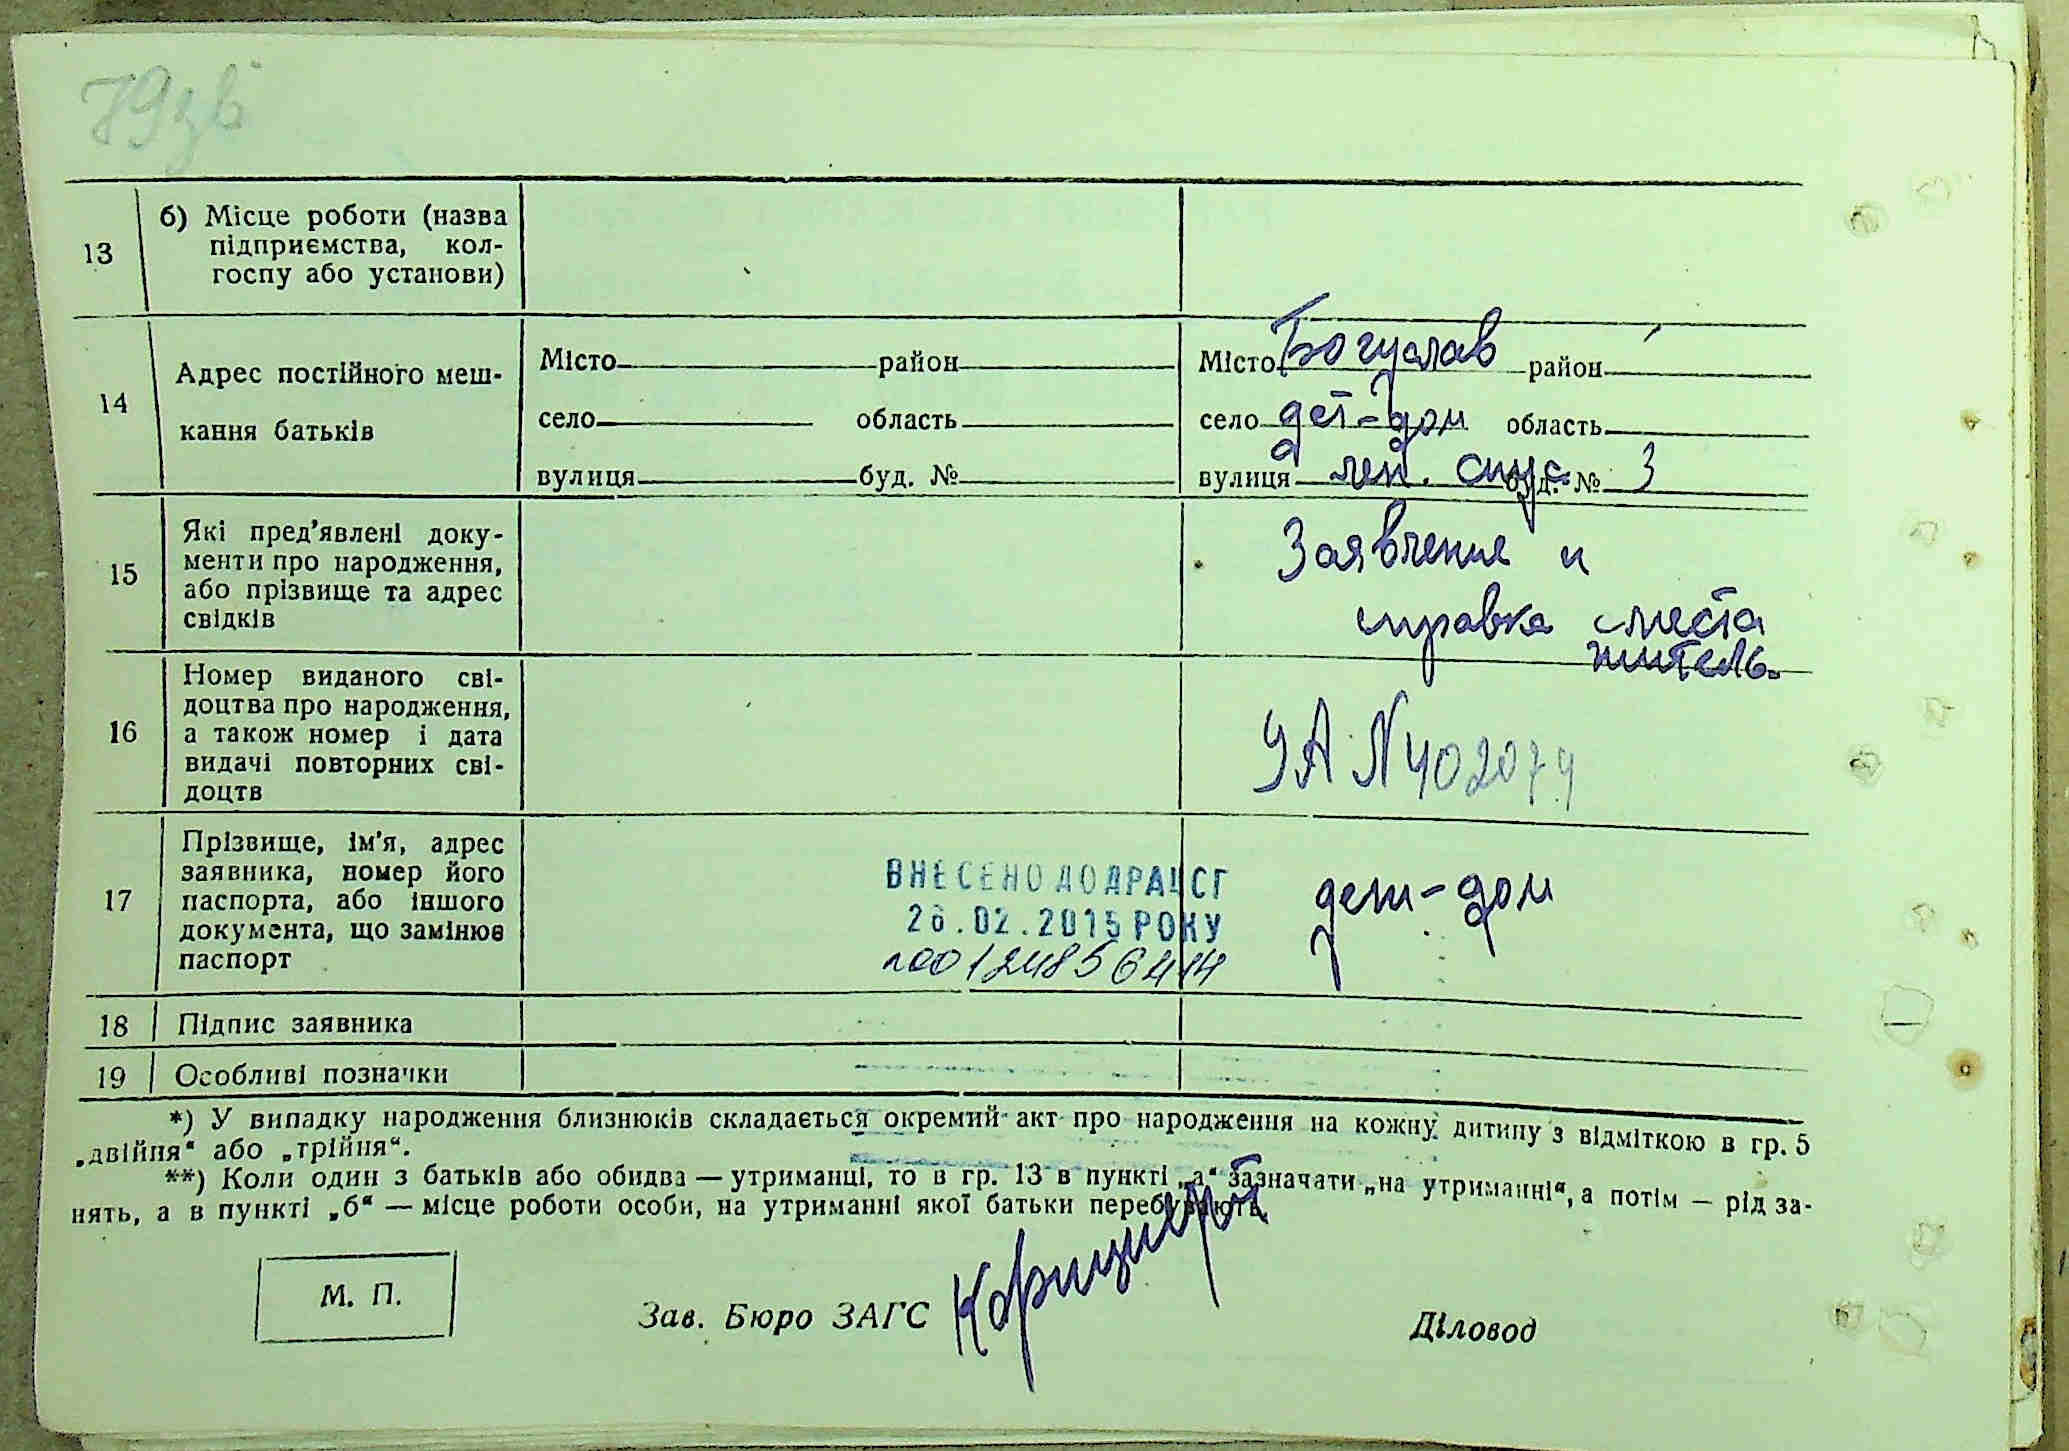 79зв
13
б) Місце роботи (назва
підприємства, кол-
госпу або установи)
14
Адрес постійного меш-
кання батьків
Місто район
село область
вулиця буд. №
Місто Богуслав район
село дет-дом область
вулиця лен. спус буд. № 3
15
Які пред'явлені доку-
менти про народження,
або прізвище та адрес
свідків
Заявление и
справка с места
житель.
16
Номер виданого сві-
доцтва про народження,
а також номер і дата
видачі повторних сві-
доцтв
УА N 402074
17
Прізвище, ім'я, адрес
заявника, номер його
паспорта, або іншого
документа, що замінює
паспорт
ВНЕСЕНО ДО ДРАЦСГ
26.02.2015 РОКУ
дет-дом
18
Підпис заявника
19
Особливі позначки
*) У випадку народження близнюків складається окремий акт про народження на кожну дитину з відміткою в гр. 5
„двійня“ або „трійня“.
**) Коли один з батьків або обидва — утриманці, то в гр. 13 в пункті „а“ зазначати „на утриманні“, а потім — рід за-
нять, а в пункті „б“ — місце роботи особи, на утриманні якої батьки перебувають.
М. П.
Зав. Бюро ЗАГС
Діловод